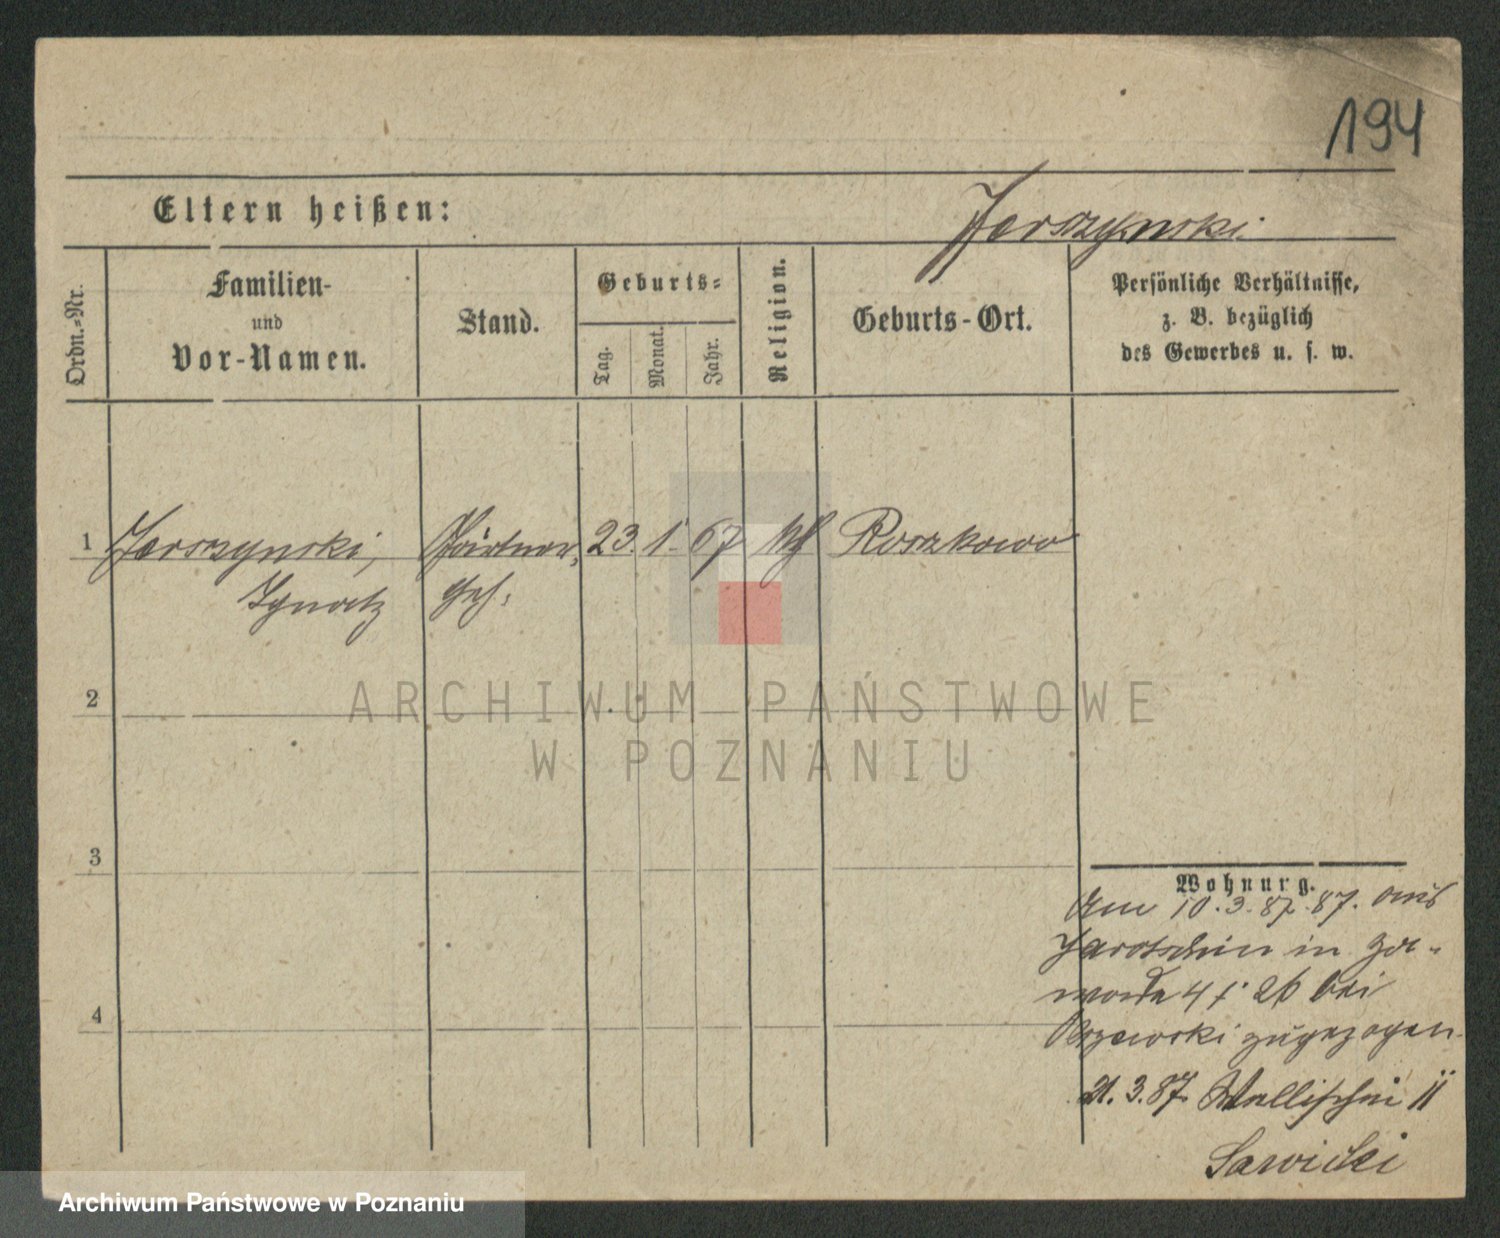 194
Eltern heißen:
Jerszynski
Ordn.=Nr.
Familien-
und
Vor-Namen.
Stand.
Geburts=
Tag.
Monat.
Jahr.
Religion.
Geburts-Ort.
Persönliche Verhältnisse,
z. B. bezüglich
des Gewerbes u. s. w.
1 Jerszynski, Gärtner, 23. 1. 67 kth Roszkowo
Ignatz geh.
2
ARCHIWUM PAŃSTWOWE
W POZNANIU
3
Wohnung.
Am 10. 3. 87. 87. aus
Jarotschin in Za-
wade 4 / 26 bei
zugezogen.
21. 3. 87. Wallischei 11
4
Sawicki
Archiwum Państwowe w Poznaniu